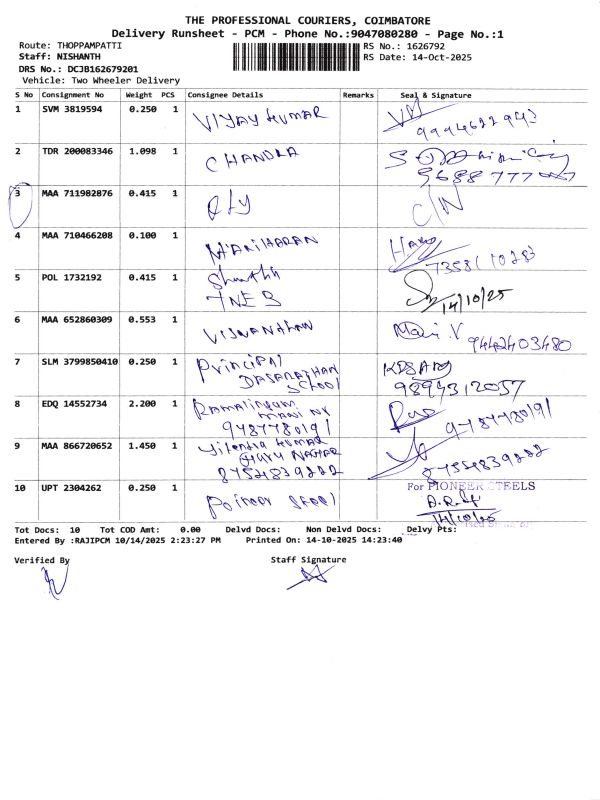 THE PROFESSIONAL COURIERS, COIMBATORE
Delivery Runsheet - PCM - Phone No.:9047080280 - Page No.:1
Route: THOPPAMPATTI RS No.: 1626792
Staff: NISHANTH RS Date: 14-Oct-2025
DRS No.: DCJB162679201
Vehicle: Two Wheeler Delivery
S No Consignment No Weight PCS Consignee Details Remarks Seal & Signature
1 SVM 3819594 0.250 1 VIJAY KUMAR
9994622943
2 TDR 200083346 1.098 1 CHANDRA
3 MAA 711982876 0.415 1 C/N
4 MAA 710466208 0.100 1 MANIHARAN
5 POL 1732192 0.415 1
TNEB 14/10/25
6 MAA 652860309 0.553 1 VISWANATHAN Mani.V 9442403480
7 SLM 3799850410 0.250 1 Principal
DASARATHAN
SCHOOL 9894312057
8 EDQ 14552734 2.200 1 Ramalingam
9787780191 9787780191
9 MAA 866720652 1.450 1 Jitendra KUMAR
NAGAR
8754839222 8754839222
10 UPT 2304262 0.250 1 For PIONEER STEELS
14/10/25
Tot Docs: 10 Tot COD Amt: 0.00 Delvd Docs: Non Delvd Docs: Delvy Pts:
Entered By :RAJIPCM 10/14/2025 2:23:27 PM Printed On: 14-10-2025 14:23:40
Verified By Staff Signature